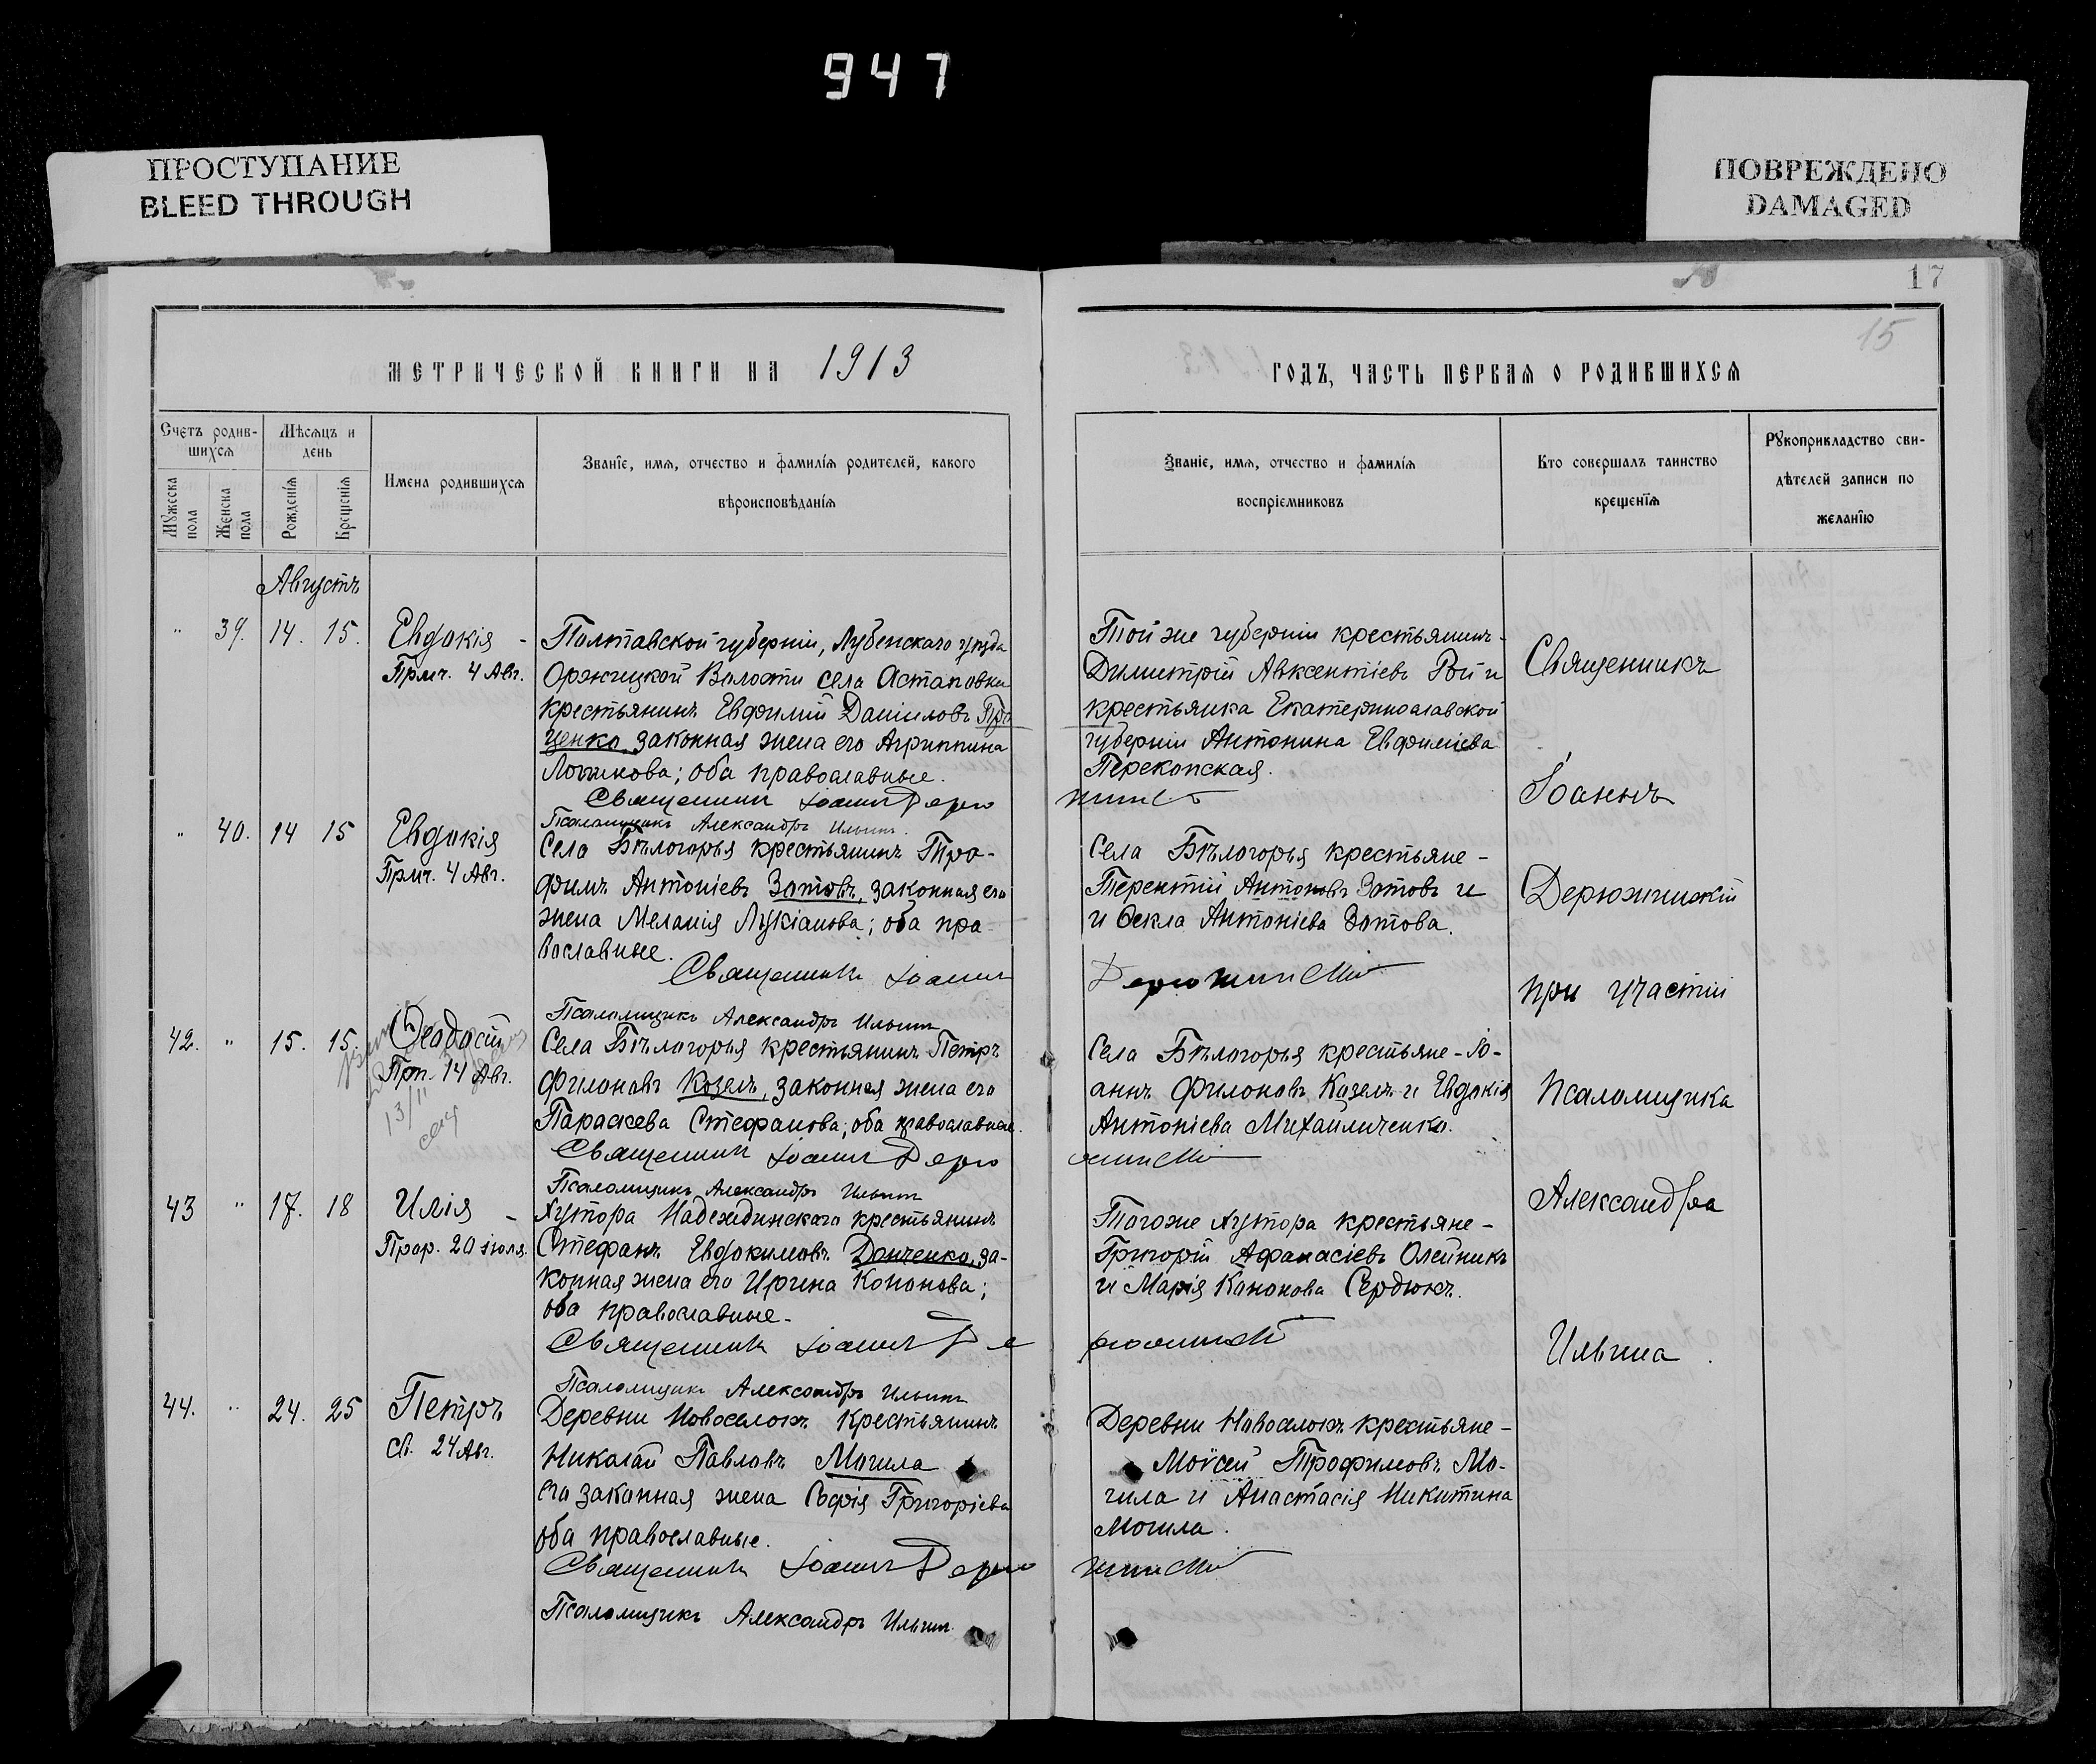 947
ПРОСТУПАНИЕ
BLEED THROUGH
ПОВРЕЖДЕНО
DAMAGED
17
15
МЕТРИЧЕСКОЙ КНИГИ НА 1913
Счетъ родив-
шихся
Мѣсяцъ и
день
Мужеска
пола
Женска
пола
Рожденія
Крещенія
Имена родившихся
Званіе, имя, отчество и фамилія родителей, какого
вѣроисповѣданія
Августъ
" 39. 14. 15.
Евдокія -
Прмч. 4 Авг.
Полтавской губерніи, Лубенскаго уѣзда
Оржицкой Волости села Астаповки
крестьянинъ Евфимій Даніиловъ Про
ценко, законная жена его Агриппина
Логинова; оба православные.
Священникъ Іоаннъ Дерю
Псаломщикъ Александръ Ильинъ.
" 40. 14 15
Евдокія
Прмч. 4 Авг.
Села Бѣлогорья крестьянинъ Тро-
фимъ Антоніевъ Зотовъ, законная его
жена Меланія Лукіанова; оба пра-
вославные.
Священникъ Іоаннъ
Псаломщикъ Александръ Ильинъ
42. " 15. 15.
Прп. 14 Авг.
13/II
Села Бѣлогорья крестьянинъ Петръ
Филоновъ Козелъ, законная жена его
Параскева Стефанова; оба православные.
Священникъ Іоаннъ Дерю
Псаломщикъ Александръ Ильинъ
43 " 17. 18
Илія -
Прор. 20 іюля.
Хутора Надеждинскаго крестьянинъ
Стефанъ Евдокимовъ Донченко, за-
конная жена его Ирина Кононова;
оба православные.
Священникъ Іоаннъ Де
Псаломщикъ Александръ Ильинъ
44. " 24. 25
Петръ
св. 24 Авг.
Деревни Новоселокъ крестьянинъ
Николай Павловъ Могила
его законная жена Софія Григоріева
оба православные.
Священникъ Іоаннъ Дерю
Псаломщикъ Александръ Ильинъ.
ГОДЪ, ЧАСТЬ ПЕРВАЯ О РОДИВШИХСЯ
Званіе, имя, отчество и фамилія
воспріемниковъ
Кто совершалъ таинство
крещенія
Рукоприкладство сви-
дѣтелей записи по
желанію
Той же губерніи крестьянинъ -
Димитрій Авксентіевъ Гой и
крестьянка Екатеринославской
губерніи Антонина Евфиміева
Перекопская.
жинскій
Села Бѣлогорья крестьяне -
Терентій Антоновъ Зотовъ и
и Ѳекла Антоніева Зотова.
Дерюжинскій
Села Бѣлогорья крестьяне - Іо-
аннъ Филоновъ Козелъ и Евдокія
Антоніева Михаиличенко.
жинскій
Тогоже Хутора крестьяне -
Григорій Афанасіевъ Олейникъ
и Марія Кононова Сердюкъ.
рюжинскій
Деревни Новоселокъ крестьяне -
Моѵсей Трофимовъ Мо-
гила и Анастасія Никитина
Могила.
жинскій
Священникъ
Іоаннъ
Дерюжинскій
при участіи
Псаломщика
Александра
Ильина